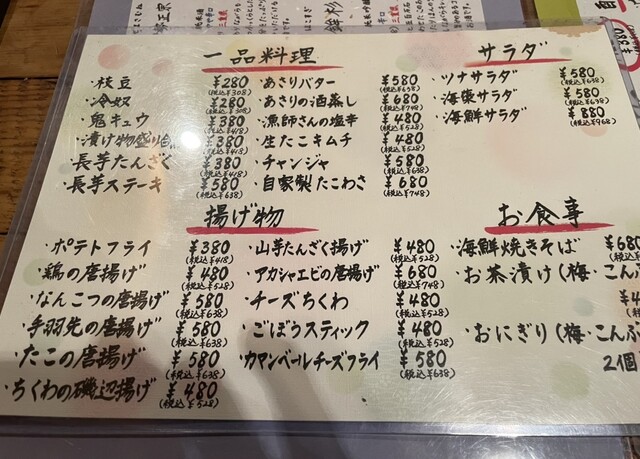 一品料理
・枝豆 ¥280 (税込¥308)
・冷奴 ¥280 (税込¥308)
・鬼キュウ ¥380 (税込¥418)
・漬け物盛り合 ¥380 (税込¥418)
・長芋たんざく ¥380 (税込¥418)
・長芋ステーキ ¥580 (税込¥638)
・あさりバター ¥580 (税込¥638)
・あさりの酒蒸し ¥680 (税込¥748)
・漁師さんの塩辛 ¥480 (税込¥528)
・生たこキムチ ¥480 (税込¥528)
・チャンジャ ¥580 (税込¥638)
・自家製たこわさ ¥680 (税込¥748)
サラダ
・ツナサラダ ¥580 (税込¥638)
・海藻サラダ ¥580 (税込¥638)
・海鮮サラダ ¥880 (税込¥968)
揚げ物
・ポテトフライ ¥380 (税込¥418)
・鶏の唐揚げ ¥480 (税込¥528)
・なんこつの唐揚げ ¥580 (税込¥638)
・手羽先の唐揚げ ¥580 (税込¥638)
・たこの唐揚げ ¥580 (税込¥638)
・ちくわの磯辺揚げ ¥480 (税込¥528)
・山芋たんざく揚げ ¥480 (税込¥528)
・アカシャエビの唐揚げ ¥680 (税込¥748)
・チーズちくわ ¥480 (税込¥528)
・ごぼうスティック ¥480 (税込¥528)
・カマンベールチーズフライ ¥580 (税込¥638)
お食事
・海鮮焼きそば ¥680
・お茶漬け(梅・こんぶ
・おにぎり(梅・こんぶ
2個